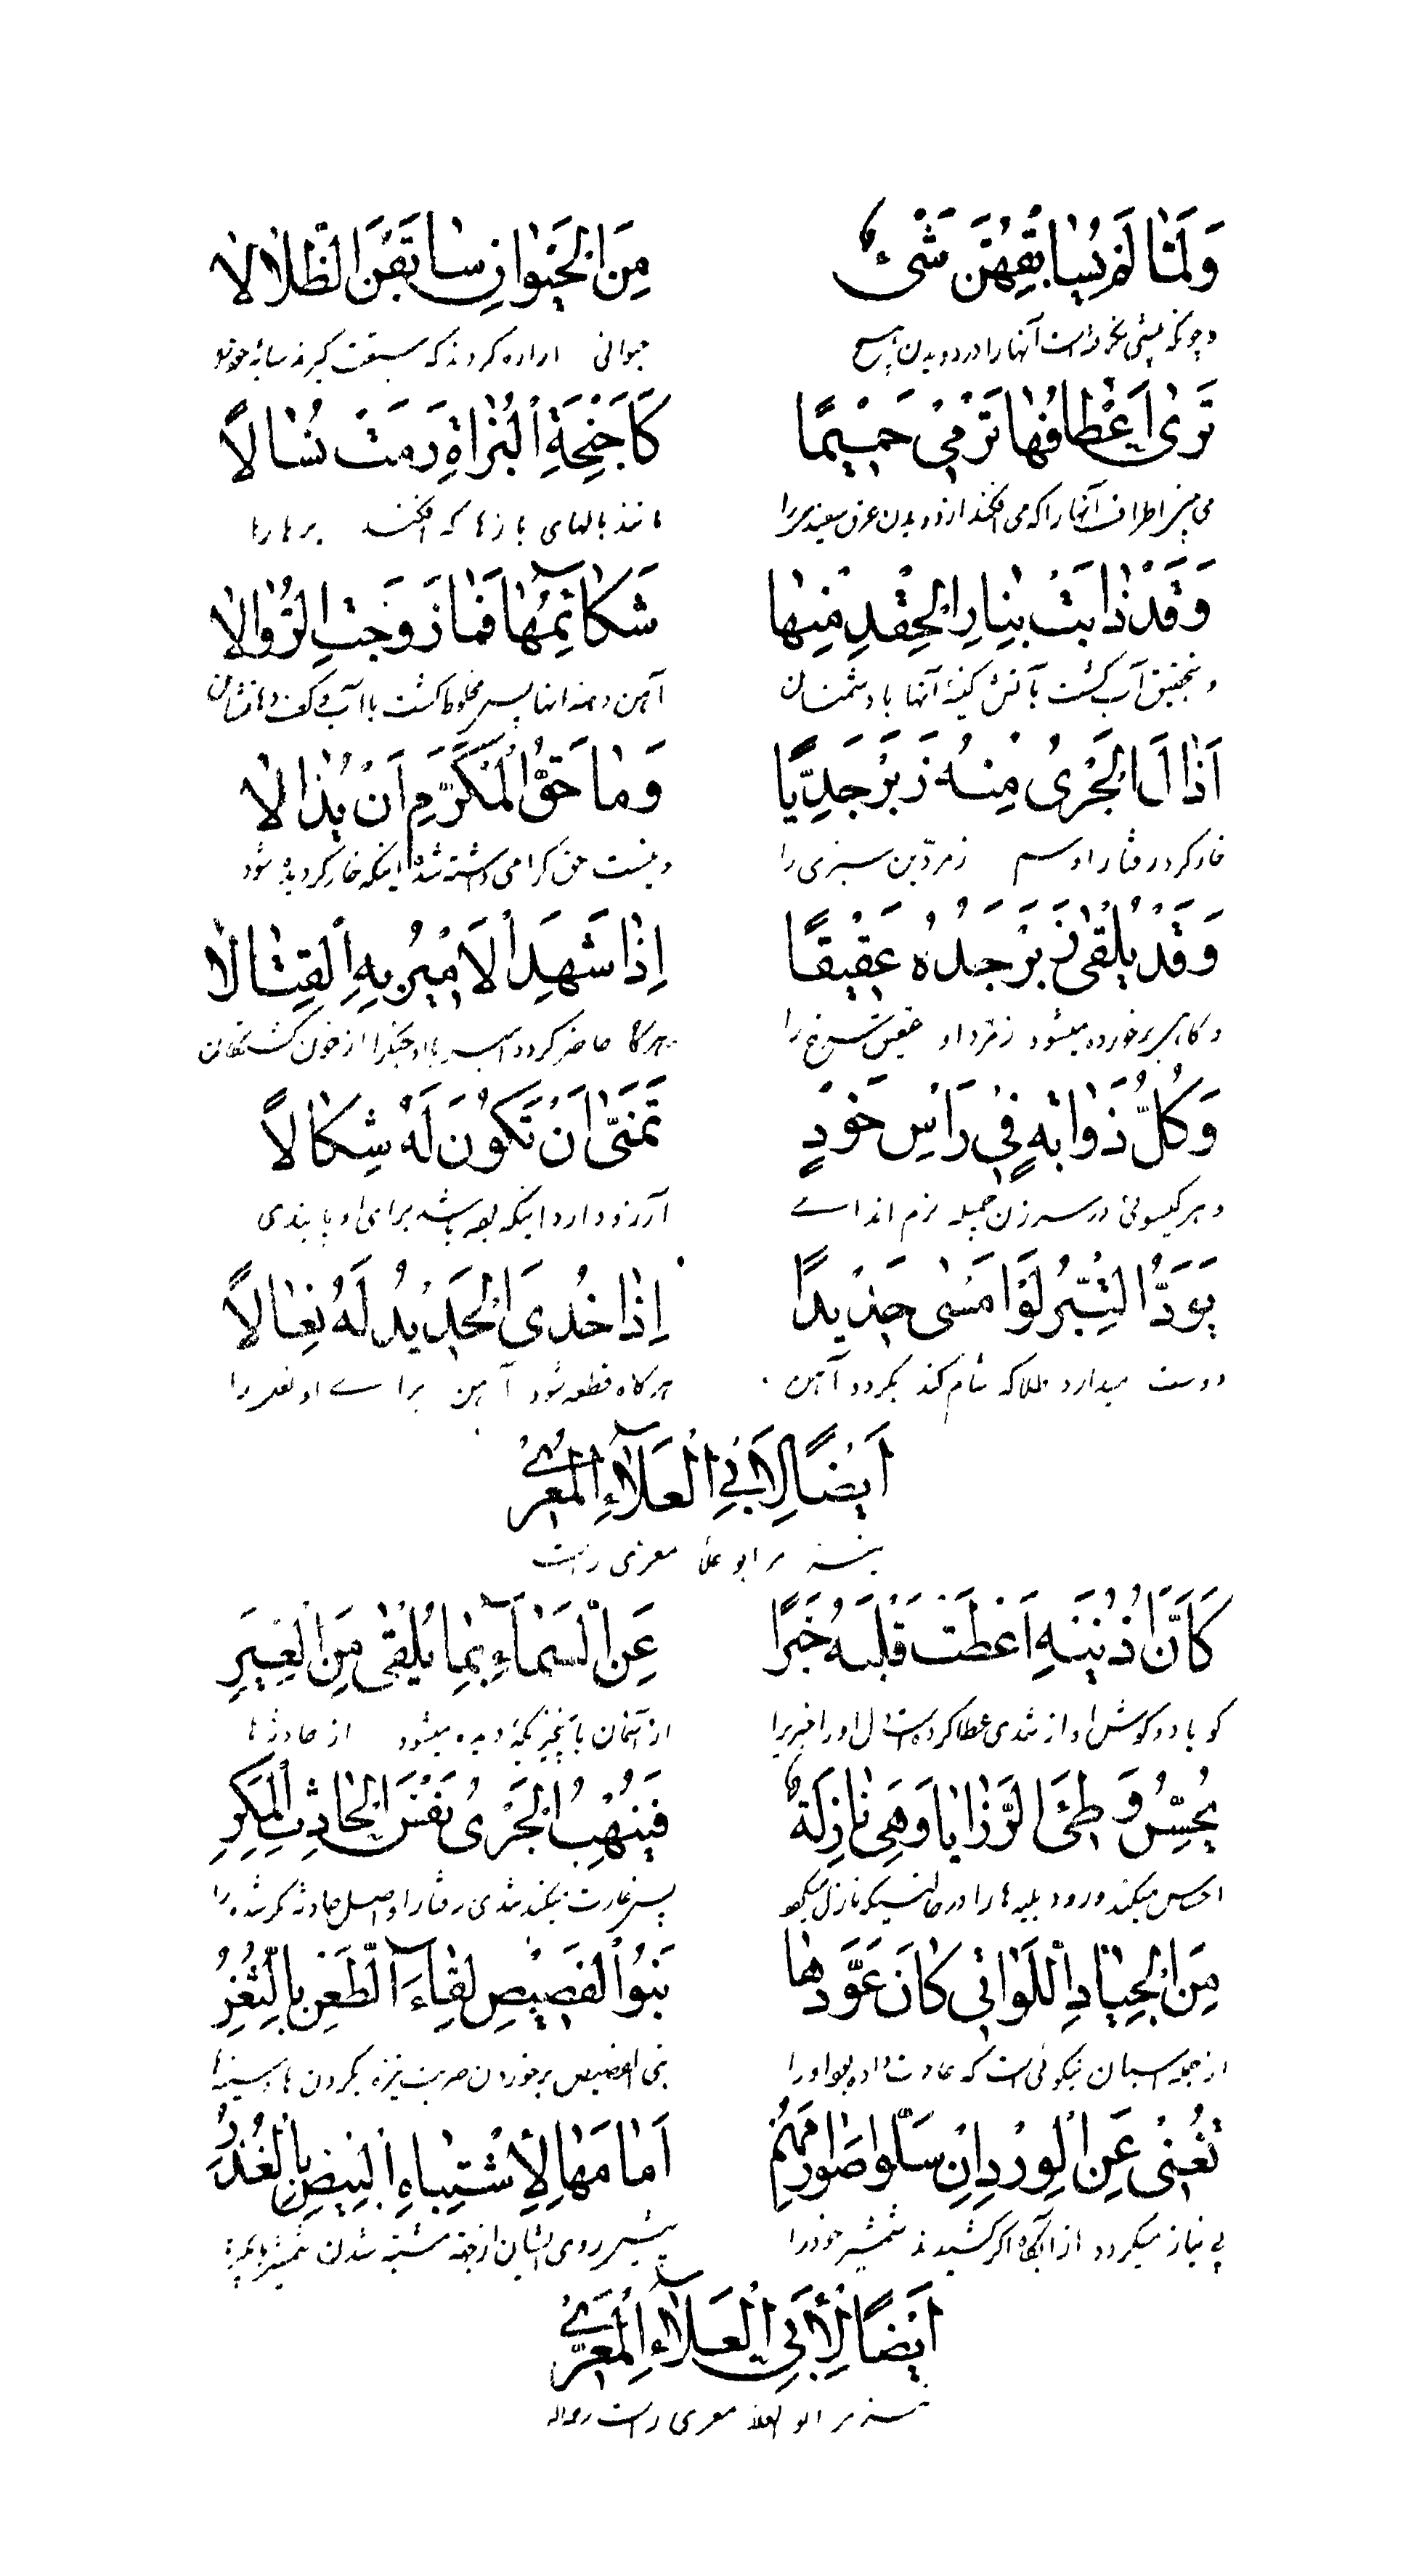 وَلَمّٰا لَمْ يُسٰابِقْهُنَّ شَيْءٌ مِنَ الْحَيَوٰانِ سٰابَقْنَ الظِّلاٰلاٰ
وچونکه پیشی نگرفته است آنها را در دویدن هیچ حیوانی اراده کردند که سبقت گیرند سایهٔ خود را
تَرٰى اَعْطٰافَهٰا تَرْمِيْ حَمِيْمًا كَاَجْنِحَةِ الْبُزٰاةِ رَمَتْ نُسٰالاً
می بینی اطراف آنها را که می افکند از دویدن عرق سفید را مانند بالهای بازها که افکند پرها را
وَقَدْ ذٰابَتْ بِنٰارِ الْحِقْدِ مِنْهٰا شَكٰائِمُهٰا فَمٰازَجَتِ الرُّوٰالاٰ
وبتحقیق آب گشت بآتش کینهٔ آنها با دشمنان آهن دهنه آنها پس مخلوط گشت با آب و کف دهانشان
اَذٰالَ الْجَرْىُ مِنْهُ زَبَرْجَدِيًّا وَمٰا حَقُّ الْمُكَرَّمِ اَنْ يُذٰالاٰ
خار کرد رفتار او سم زمرّدین سبزی را و نیست حق گرامی داشته شده اینکه خار گردیده شود
وَقَدْ يُلْقٰى زَبَرْجَدُهُ عَقِيْقًا اِذٰا شَهِدَ الْاَمِيْرُ بِهِ الْقِتٰالاٰ
و گاهی برخورده میشود زمرّد او عقیق سرخ را هرگاه حاضر گردد امیر با او جنگ را از خون کشتگان
وَكُلُّ ذَوٰابَةٍ فِيْ رَاْسِ خَوْدٍ تَمَنّٰى اَنْ تَكُوْنَ لَهُ شِكٰالاً
و هر گیسوئی در سر زن جمیله نرم اندامے آرزو دارد اینکه بوده باشد برای او پابندی
يَوَدُّ التِّبْرُ لَوْ اَمْسٰى حَدِيْدًا اِذٰا حُذِىَ الْحَدِيْدُ لَهُ نِعٰالاً
دوست میدارد طلا که شام کند بگردد آهن هرگاه قطعه شود آهن براے او نعل را
اَيْضًا لِاَبِي الْعَلاٰءِ الْمَعَرِّيْ
نیز مر ابو علا معری راست
كَاَنَّ اُذْنَيْهِ اَعْطَتْ قَلْبَهُ خَبَرًا عَنِ السَّمٰاءِ بِمٰا يُلْقٰى مِنَ الْغِيَرِ
گویا دو گوش او از تندی عطا کرده است دل او را خبری را از آسمان بآنچیزیکه دیده میشود از حادثها
يُحِسُّ وَطْئَ الرَّزٰايٰا وَهِىَ نٰازِلَةٌ فَيَنْهَبُ الْجَرْىُ نَفْسَ الْحٰادِثِ الْمَكِرِ
احساس میکند ورود بلیه ها را در حالتیکه نازل میشود پس غارت میکند تندی رفتار او اصل حادثه مکر شده را
مِنَ الْجِيٰادِ اللَّوٰاتِي كٰانَ عَوَّدَهٰا بَنُو الْفَصِيْصِ لِقٰاءَ الطَّعْنِ بِالثُّغَرِ
از جمله اسبان نیکوئی است که عادت داده بود او را بنی الفصیص برخوردن ضربت نیزه بگردن ها و سینها
تُغْنٰى عَنِ الْوِرْدِ اِنْ سَلُّوا صَوٰارِمَهُمْ اَمٰامَهٰا لِاشْتِبٰاهِ الْبِيْضِ بِالْغُدُرِ
بی نیاز میگردد از آبگاه اگر کشیدند شمشیر خود را پیش روی ایشان از جهة مشتبه شدن شمشیر
اَيْضًا لِأَبِي الْعَلاٰءِ الْمَعَرِّيْ
نیز مر ابو العلا معری راست